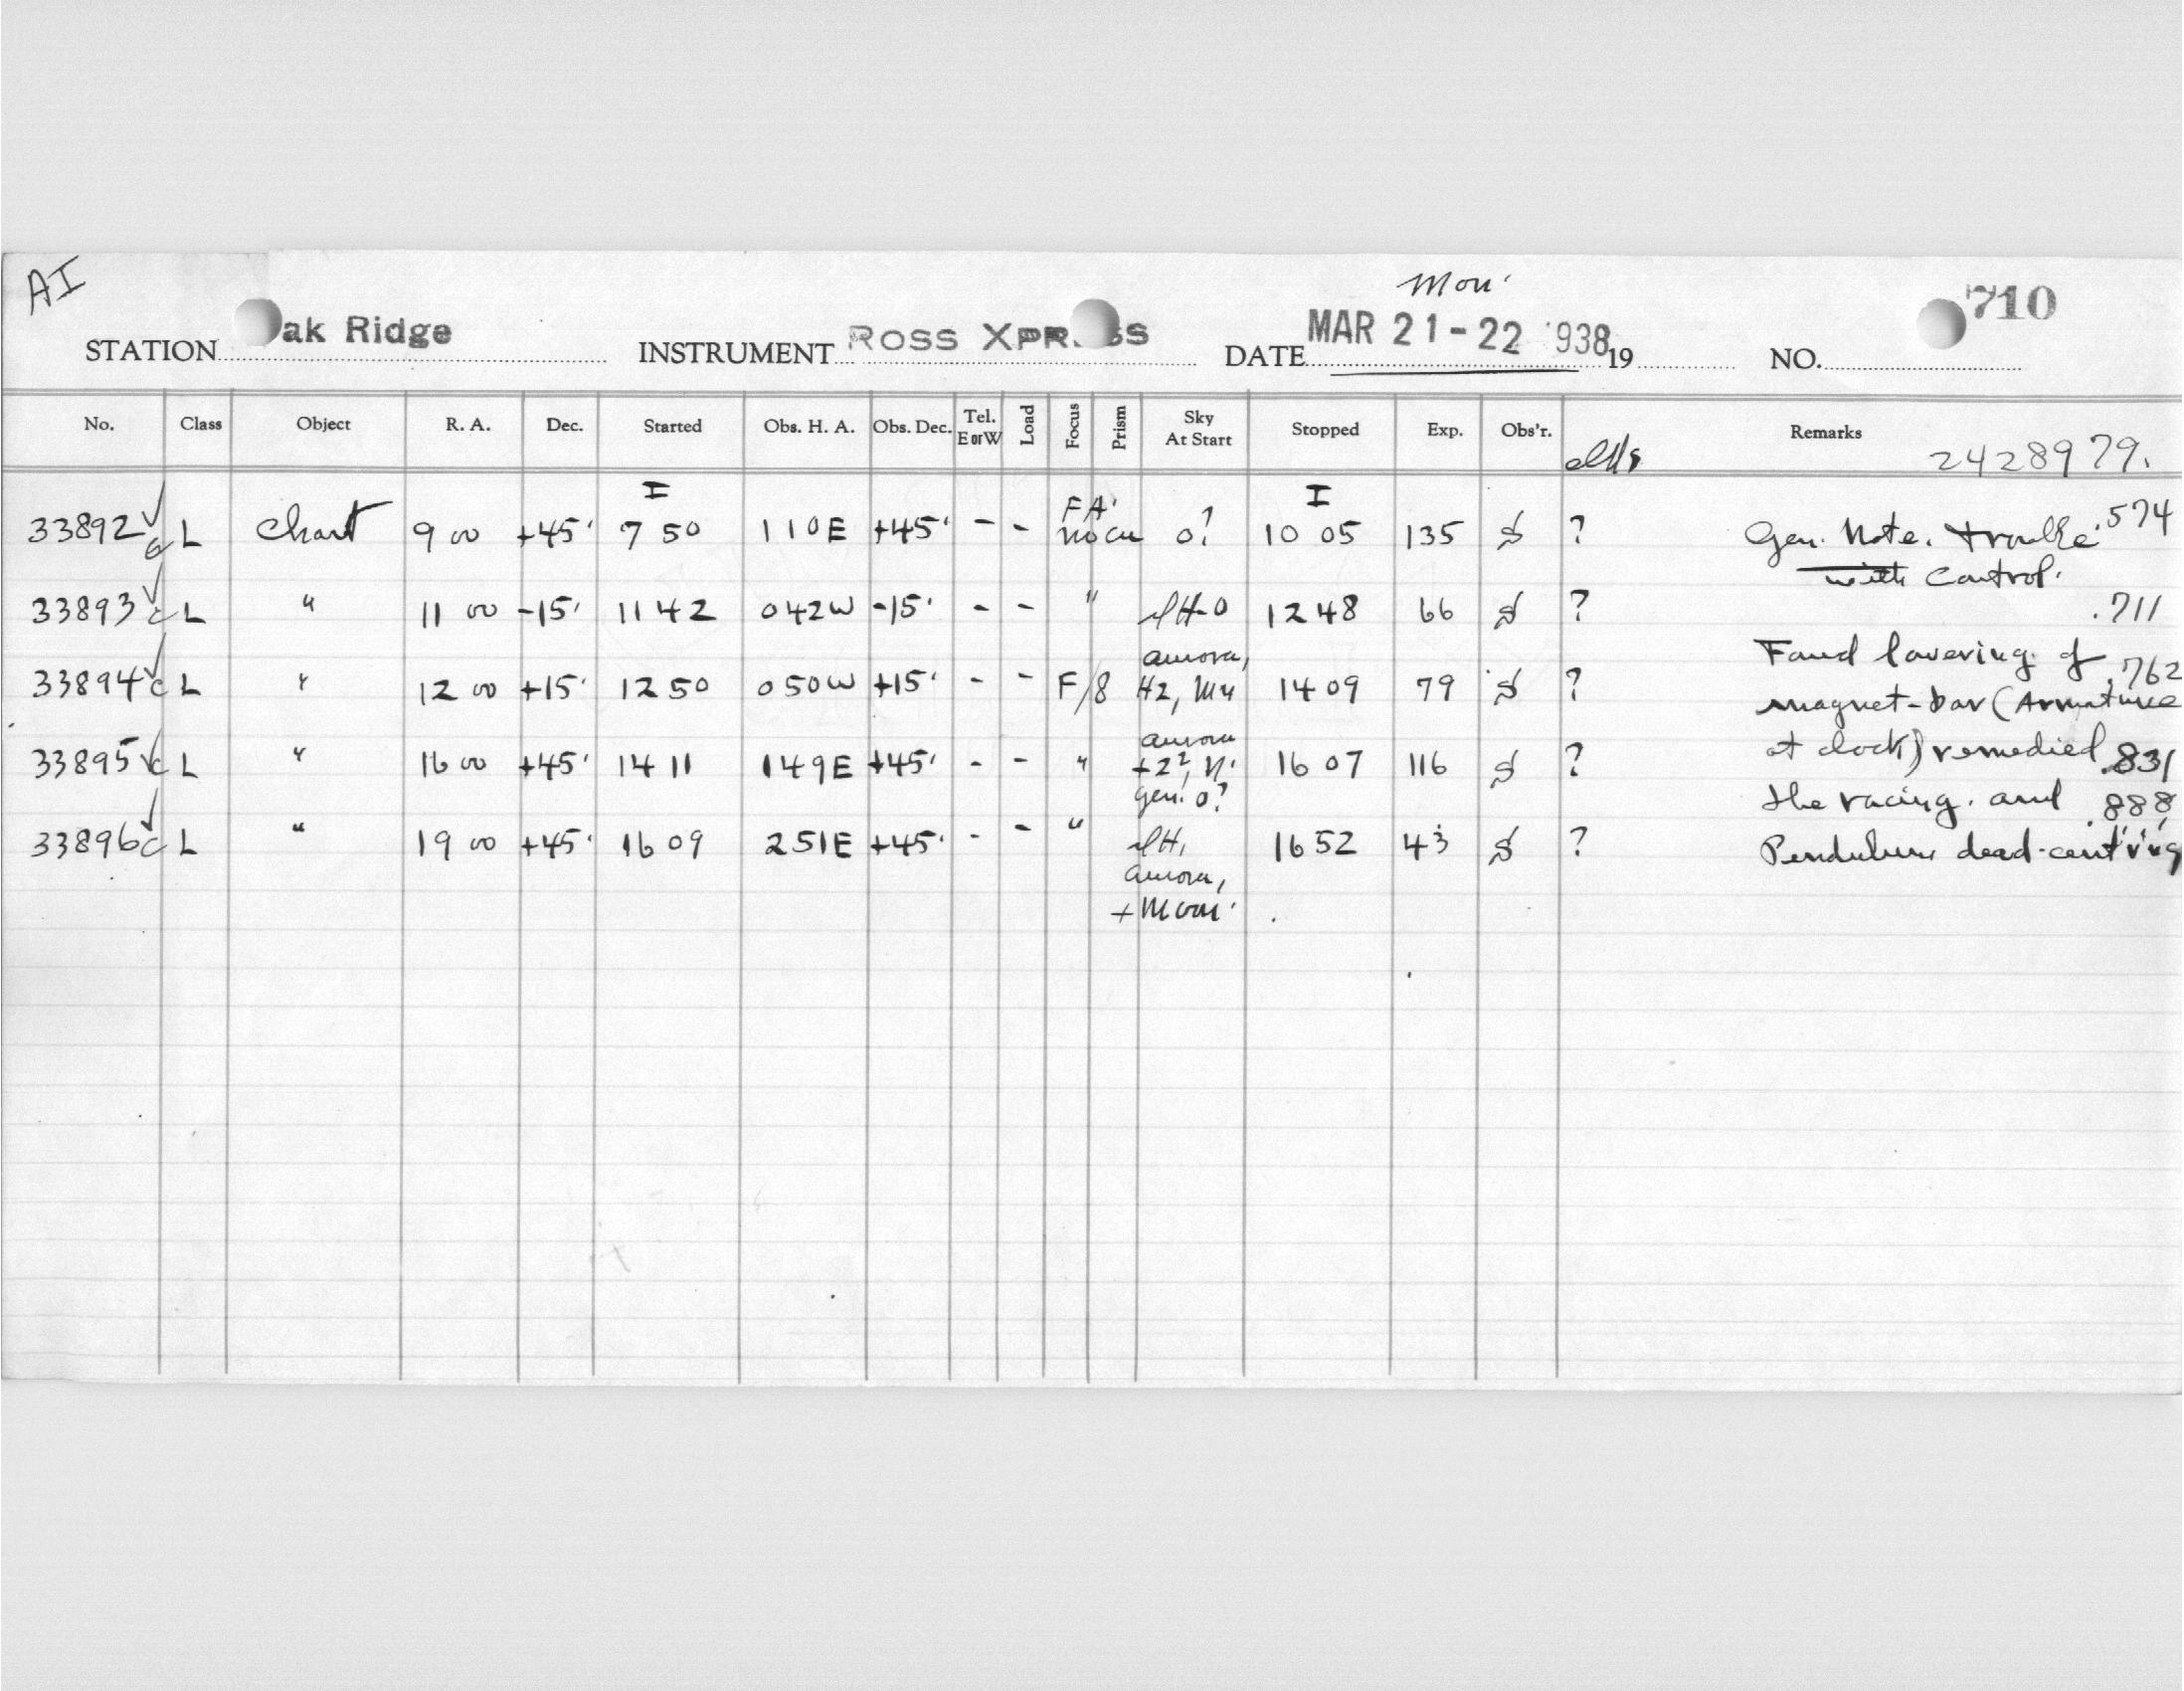 AI
Mon.
710
STATION ak Ridge INSTRUMENT ROSS XPR SS DATE MAR 21-22 938 19 NO.
No. Class Object R. A. Dec. Started Obs. H. A. Obs. Dec. Tel. E or W Load Focus Prism Sky At Start Stopped Exp. Obs'r. Remarks
2428979.
I I
33892 L Chart 9 00 +45° 7 50 1 10E +45° - - FA. 0? 10 05 135 ? Gen. Note. trouble .574
with control.
33893 c L " 11 00 -15° 11 42 0 42W -15° - - " 12 48 66 ? .711
33894 c L " 12 00 +15° 12 50 0 50W +15° - - F/8 aurora, H2, 14 09 79 ? Found lowering of .762
magnet-bar (Armature
33895 c L " 16 00 +45° 14 11 1 49E +45° - - " aurora +2², N. gen. 0? 16 07 116 ? at clock) remedied .831
the racing. and .888
33896 c L " 19 00 +45° 16 09 2 51E +45° - - " 16 52 43 ? Pendulum dead-centring
aurora,
+Moon.